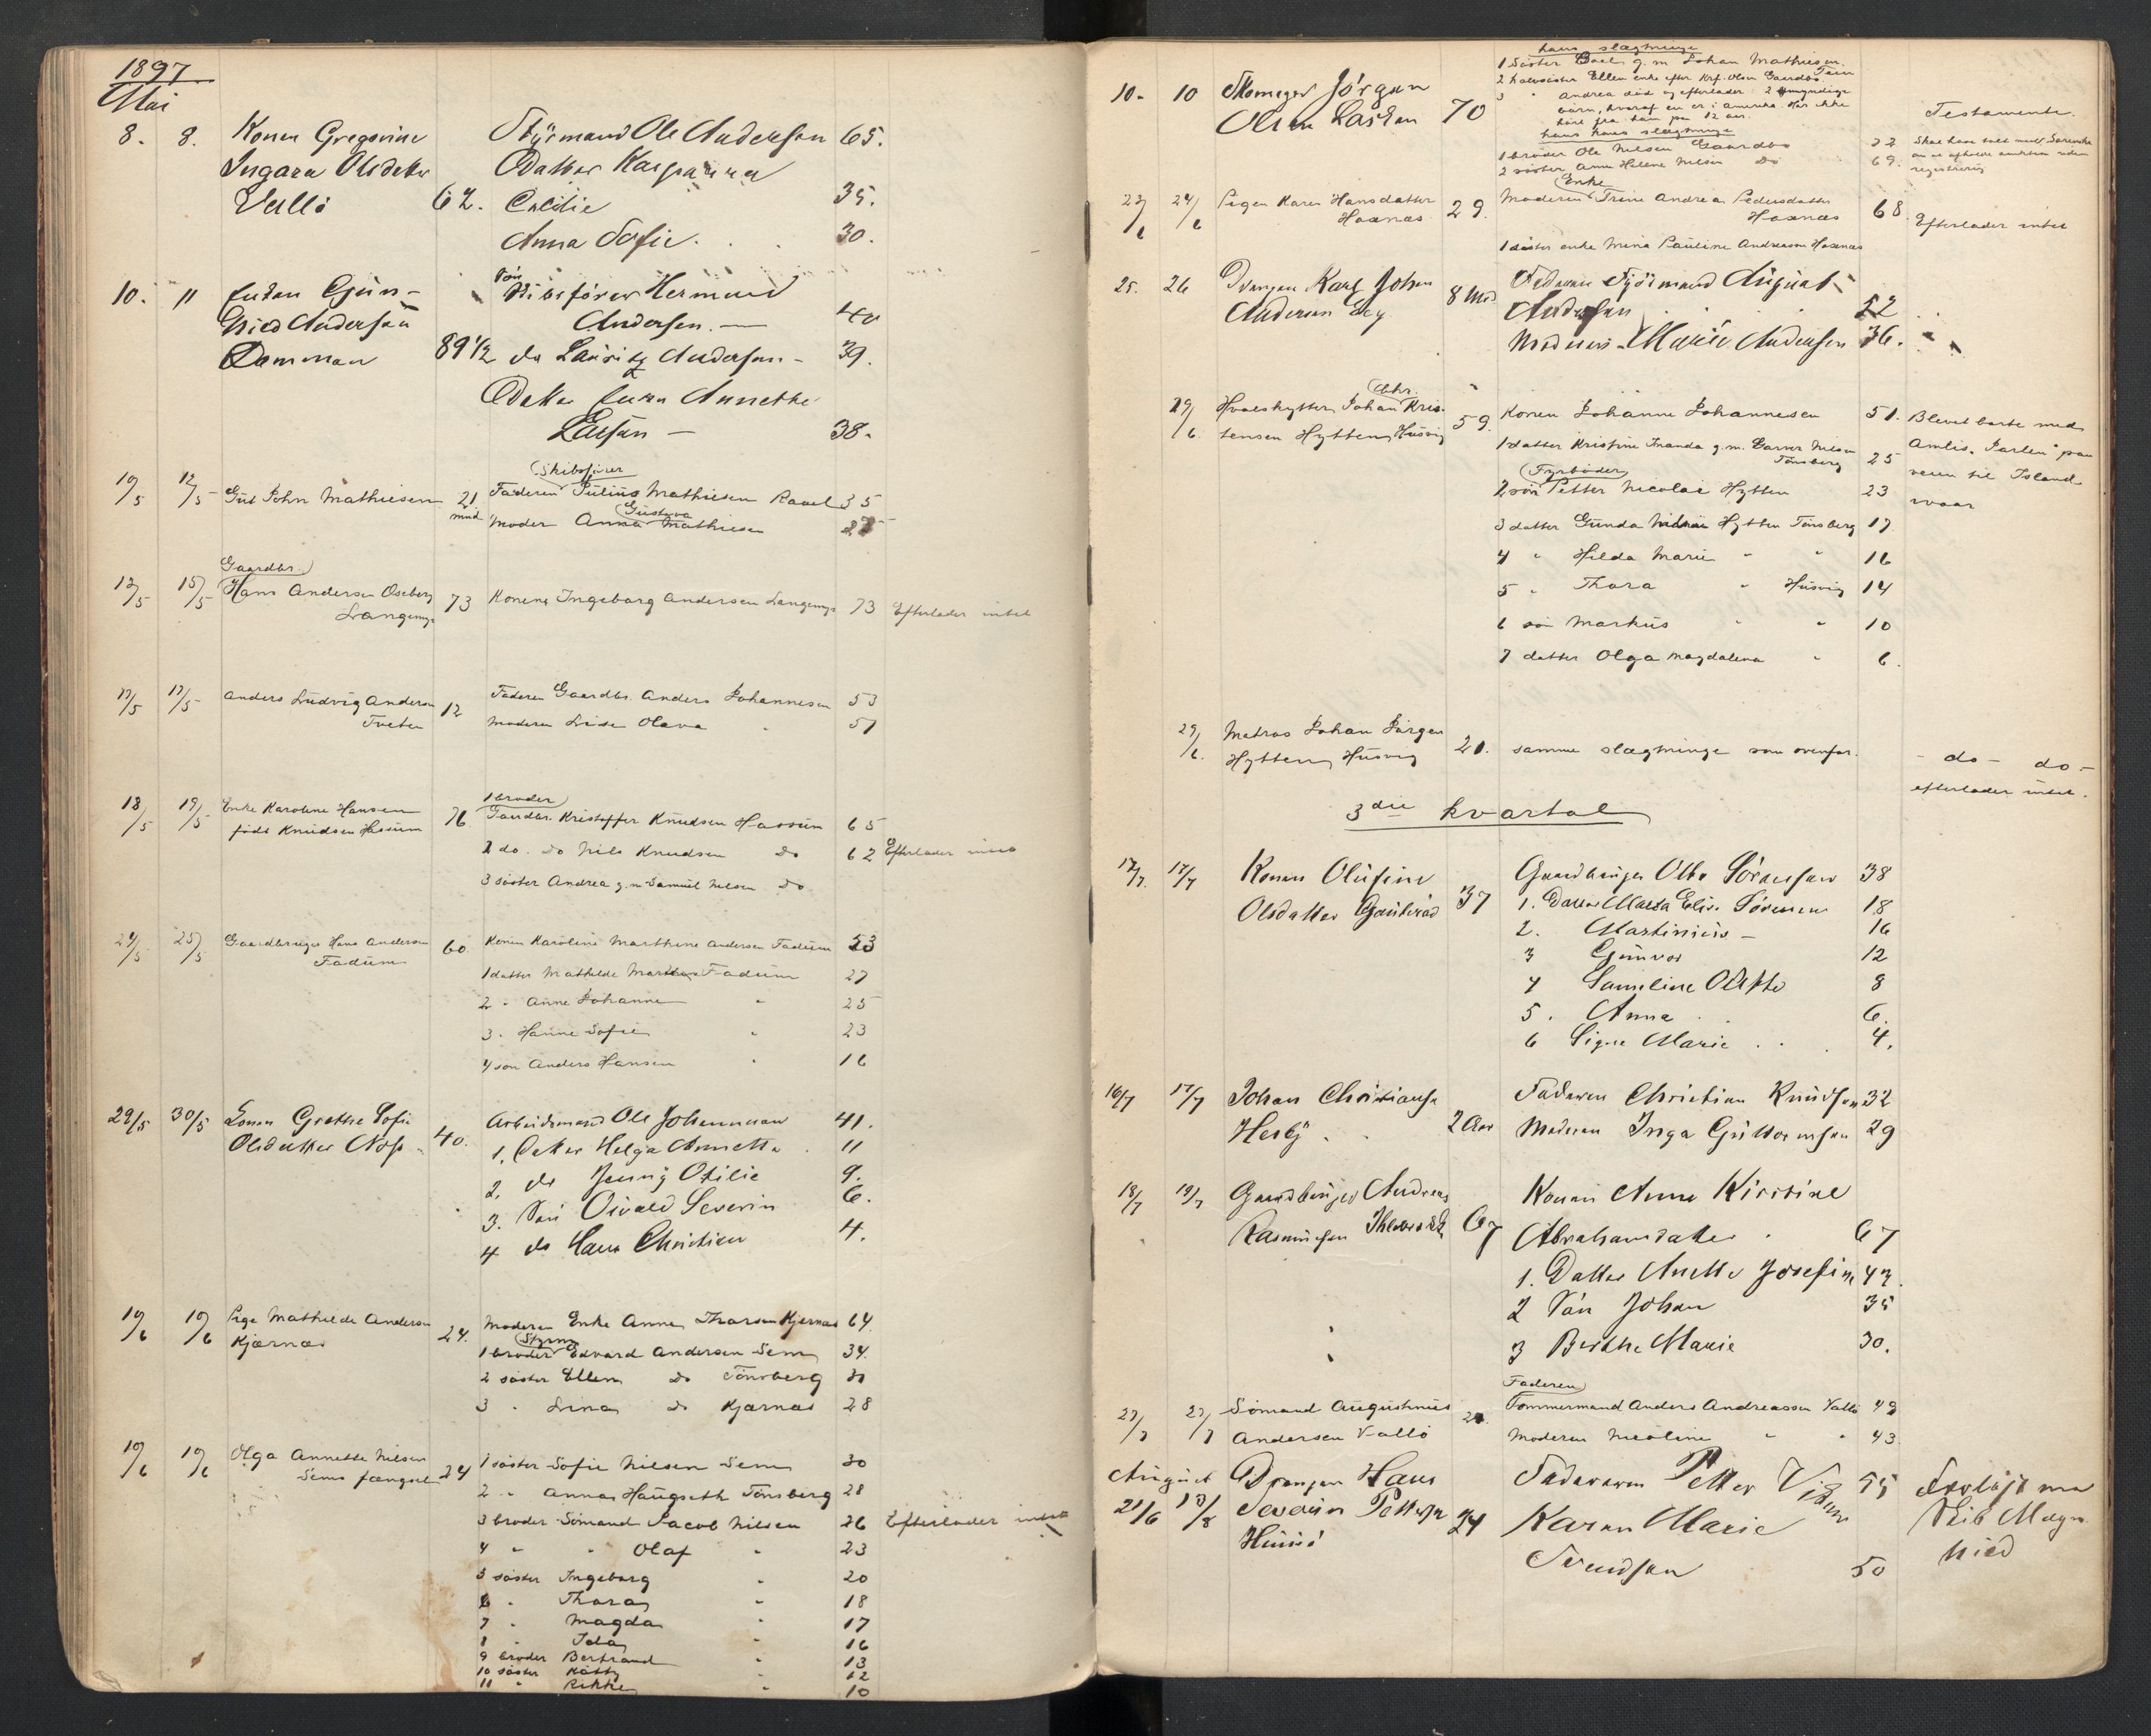 1897
Mai
8. 8. Konen Gregorine Styrmand Ole Andersen 65.
Ingara Olsdatter Datter Kasparina
Vallö 62. Cecilie 35.
Anna Sofie. 30.
10. 11 Enken Gjün- Sön Skibsförer Hermand
hild Andersen Andersen. — 40
Ramman 89 1/2 do Lauritz Andersen - 39.
Datter Fru Annethe
Larsen — 38.
10/5 12/5 Gut John Mathiesen 21 mnd
Skibsförer
Faderen Julius Mathiesen Ravel 35
Gustava
Moder Anna Mathiesen
Gaardbr.
13/5 15/5 Hans Andersen Oseberg
Langeng 73 Konen Ingeborg Andersen Langeng 73 Efterlader intet
17/5 17/5 Anders Ludvig Anderse Faderen Gaardbr. Anders Johannesen 53
Tveten 12 Moderen Lise Olava " 51
18/5 19/5 Enke Karoline Hansen 76
født Knudsen Hassum
1 broder
Gaardbr. Kristoffer Knudsen Hassum 65
2 do. do Nils Knudsen do 62 Efterlader intet
3 söster Andrea g.m. Samuel Nilsen do
24/5 25/5 Gaardbruger Hans Andersen 60. Konen Karoline Marthine Andersen Fadum 53
Fadum 1 datter Mathilde Marthea Fadum 27
2 " Anne Johanne " 25
3. Hanne Sofie " 23
4 son Anders Hansen " 16
29/5 30/5 Konen Grethe Sofie Arbeidsmand Ole Johannesen 41.
Olsdatter Näss 40. 1. Datter Helga Annette 11
2. do Jenny Otilie 9.
3. Sön Osvald Severin 6.
4 do Hans Christian 4.
10/6 10/6 Pige Mathilde Andersen 24. Moderen Enke Anne Thorsen Kjernæs 64.
Kjærnæs Styrm
1 broder Edvard Andersen Sem 34.
2 söster Ellen do Tönsberg 30
3 " Lina do Kjærnæs 28
10/6 10/6 Olga Annette Nilsen 24 1 söster Sofie Nilsen Sem 30
Sems fængsel 2 " Anna Haugseth Tönsberg 28
3 broder Sömand Jacob Nilsen 26 Efterlader intet
4 " " Olaf " 23
5 söster Ingeborg " 20
6 " Thora " 18
7 " Magda " 17
8 " Ida " 16
9 broder Bertrand " 13
10 söster Kätty " 12
11 " Rikke " 10
hans slægtninge
1 Söster Boel g.m Johan Mathiesen.
10. 10 Skomager Jörgen 2 halvsöster Ellen enke efter Krf. Olsen Gaardbo
Olsen Lasken 70 3 " Andrea död og efterlader 2 umyndige
börn, hvoraf en er i Amerika. Har ikke
hört fra ham paa 12 aar.
hans slægtninge
1 broder Ole Nilsen Gaardbo 72
2 söster Anne Helene Nilsen Do 69.
Testamente.
23/6 24/6 Pigen Karen Hansdatter 29. Enke
Haxnæs Moderen Trine Andrea Pedersdatter
Haxnæs 68. Efterlader intet
1 söster enke Mina Pauline Andreasen Haxnæs
25. 26 Drengen Karl Johan 8 Md Faderen Styrmand August
Andersen Eeg Andersen 52
Moderen Marie Andersen 36.
19/6 Hvalskytter Johan Kris- 59. Konen Johanne Johannesen 51. Blevet borte med
tensen Hytten Husvig 1 datter Kristine Amanda g.m. Garver Nilsen Tönsberg 25
Fyrböder
2 sön Petter Nicolai Hytten 23
3 datter Gunda Hytten Tönsberg 17
4 " Hilda Marie " " 16
5 " Thora " Husvig 14
6 sön Markus " " 10
7 datter Olga Magdalena " 6.
29/6. Matros Johan Jörgen 21. samme slægtninge som ovenfor. - do - do -
Hytten Husvig efterlader intet.
3die kvartal
12/7. 17/7 Konen Olufine Gaardbruger Olbe Sörensen 38
Olsdatter Gauterød 37 1. Datter Marta Elise Sörensen 18
2. Martinius - 16
3 Gunvor 12
4 Samuline Odette 8
5. Anna 6.
6 Signe Marie 4.
16/7 17/7 Johan Christiansen Faderen Christian Knudsen 32
Hesby. 2 Aar Moderen Inga Guttormsen 29
18/7 19/7 Gaardbruger Andreas Konen Anne Kirstine
Rasmussen 67 Abrahamsdatter 67
1. Datter Anette Josefine 42.
2 Sön Johan 35
3 Berthe Marie 30.
Faderen
27/7 27/7 Sömand Augustinius Tömmermand Anders Andreassen Vallö 49
Andersen Vallö Moderen Nicoline " " 43
August Drengen Hans Faderen Petter 55 Forlist m.
21/6 10/8 Severin Pettersen 24 Karen Marie Skib Magn
Husö Svendsen 50 hild